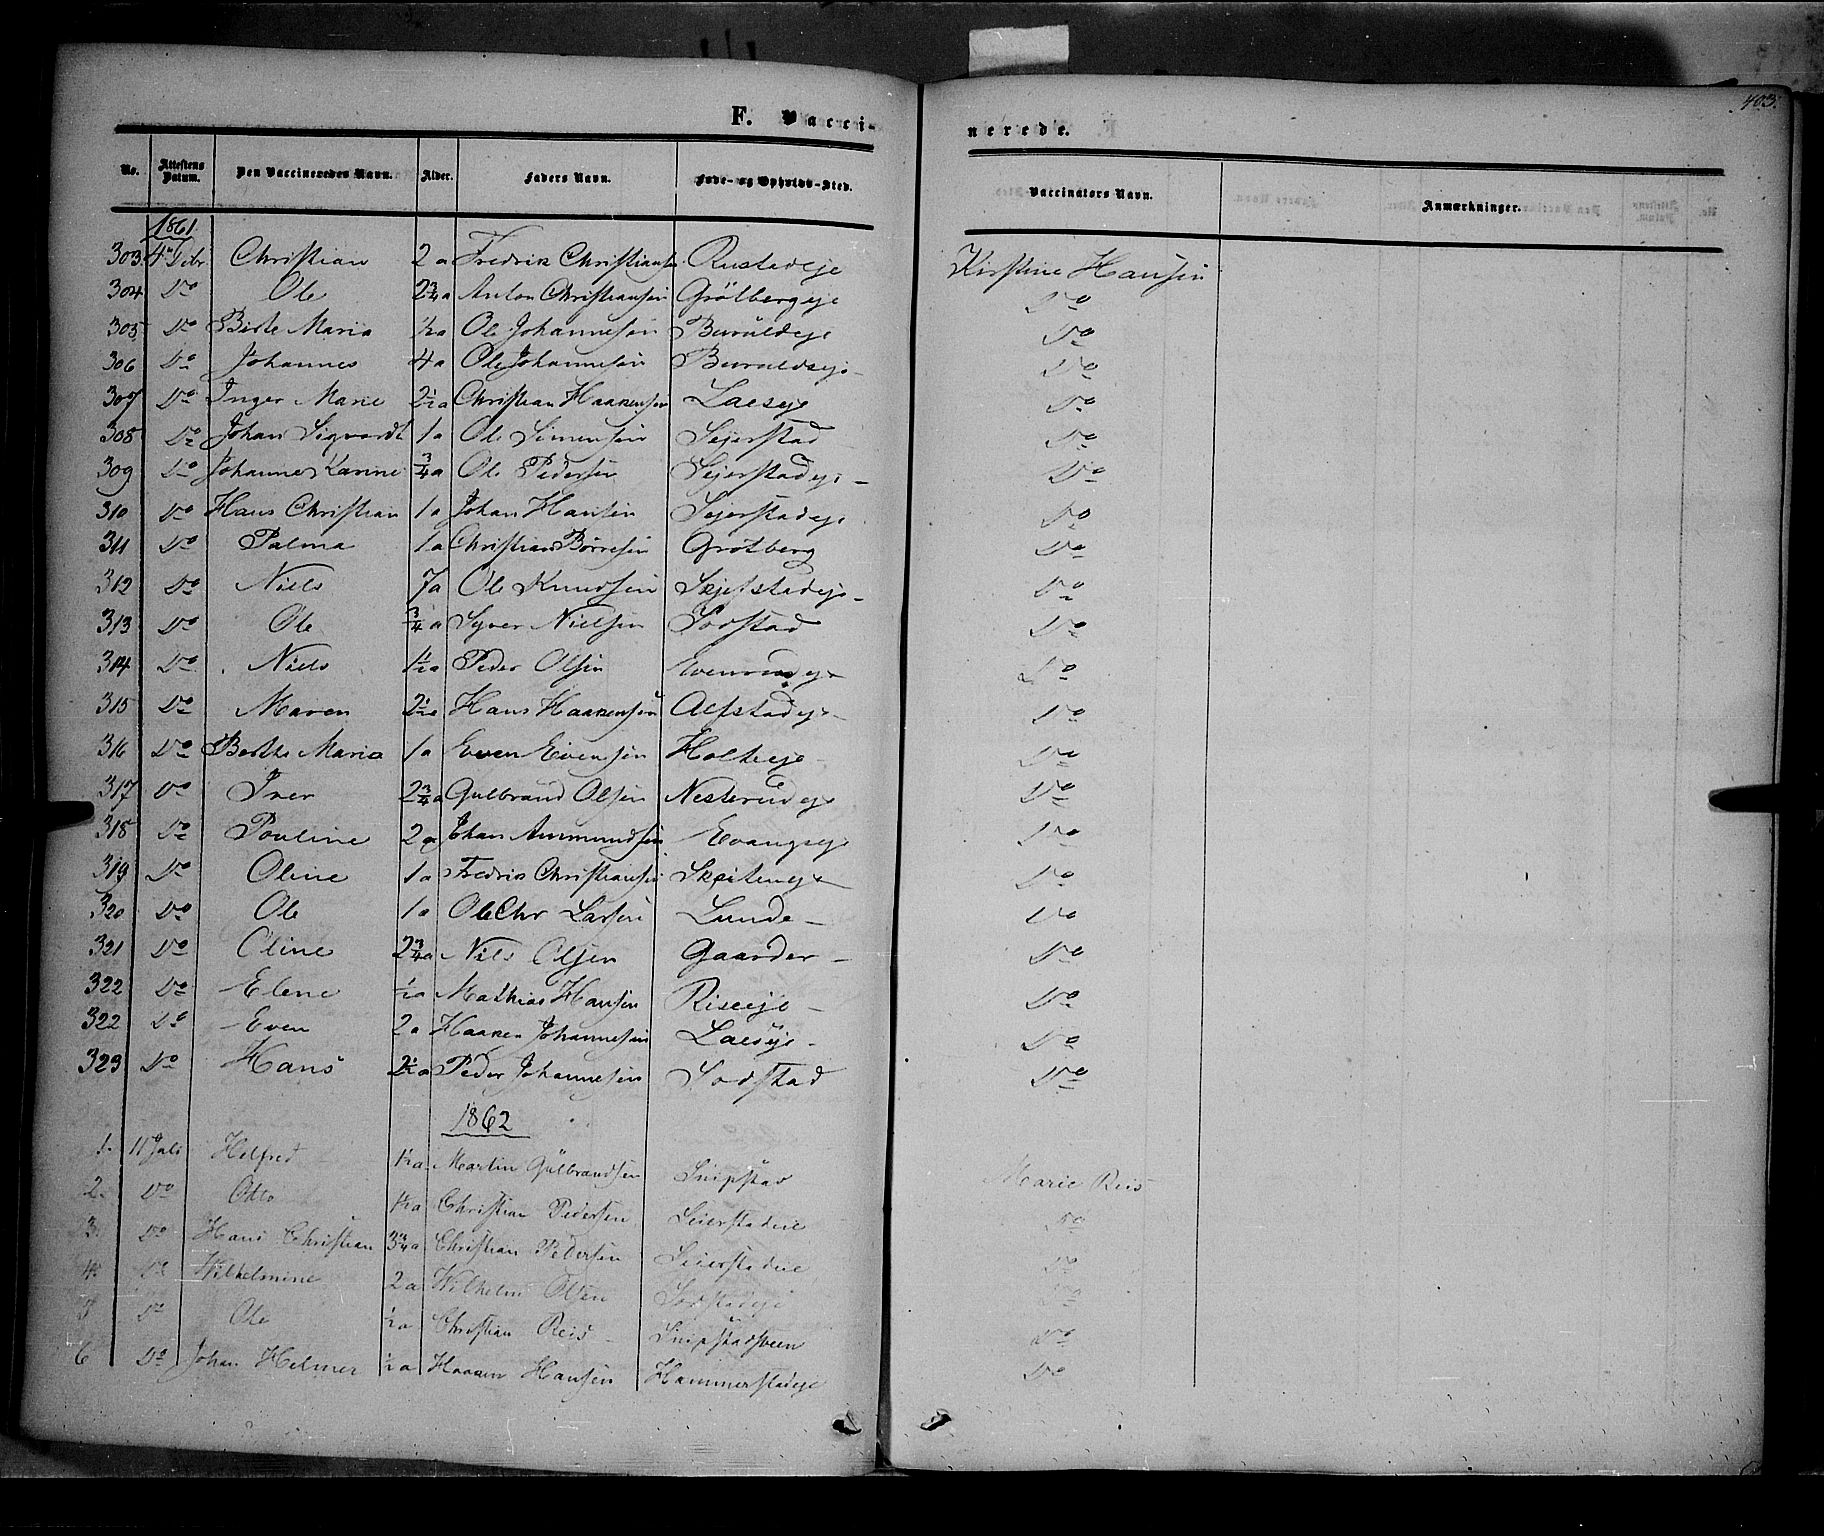 403.
F. Vacci-
nerede.
No. Attestens Datum. Den Vaccineredes Navn. Alder. Faders Navn. Føde- og Opholds-Sted. Vaccinators Navn. Anmærkninger.
1861.
303. 4de Christian 2 a Fredrik Christians. Rustadeje Kirstine Hansen
304 Do Ole 2 3/4 a Anton Christiansen Grötbergeje Do
305 Do Birte Maria 1/2 a Ole Johannesen Buruldeje Do
306 Do Johannes 4 a Ole Johannesen Buruldseje Do
307 Do Inger Marie 2 1/2 a Christian Haakensen Laeseje Do
308 Do Johan Sigvardt 1 a Ole Simensen Sejerstad Do
309 Do Johanne Karine 3/4 a Ole Pedersen Sejerstadeje Do
310 Do Hans Christian 1 a Johan Hansen Sejerstadeje Do
311 Do Palma 1 a Christian Börresen Grötberg Do
312 Do Niels 7 a Ole Knudsen Skjefstadeje Do
313 Do Ole 3/4 a Syver Nielsen Sodstad Do
314 Do Niels 1 1/2 a Peder Olsen Evenrudeje Do
315 Do Maren 2 1/2 a Hans Haakensen Alfstadeje Do
316 Do Berthe Maria 1 a Even Evensen Holteeje Do
317 Do Iver 2 3/4 a Gulbrand Olsen Nesterudeje Do
318 Do Pouline 2 a Johan Ammundsen Evangseje Do
319 Do Oline 1 a Fredrik Christiansen Skeiteneje Do
320 Do Ole 1 a Ole Chr Larsen Lunde Do
321 Do Oline 2 3/4 a Nils Olsen Gaarder Do
322 Do Elene 1/2 a Mathias Hansen Riseeje Do
322 Do Even 2 a Haaken Johannesen Laeseje Do
323 Do Hans 2 1/2 a Peder Johannesen Sodstad Do
1862
1. 11 Juli Helfred 1 1/2 a Martin Gulbrandsen Snipstad Marie Reis
2. Do Otto 1 1/2 a Christian Pedersen Seierstadeie Do
3. Do Hans Christian 3 3/4 a Christian Pedersen Seierstadeie Do
4. Do Wilhelmine 2 a Wilhelm Olsen Sodstadeje Do
5 Do Ole 1/2 a Christian Reis Snipstadsveen Do
6 Do Johan Helmer 1/2 a Haaken Hansen Hammerstadeje Do